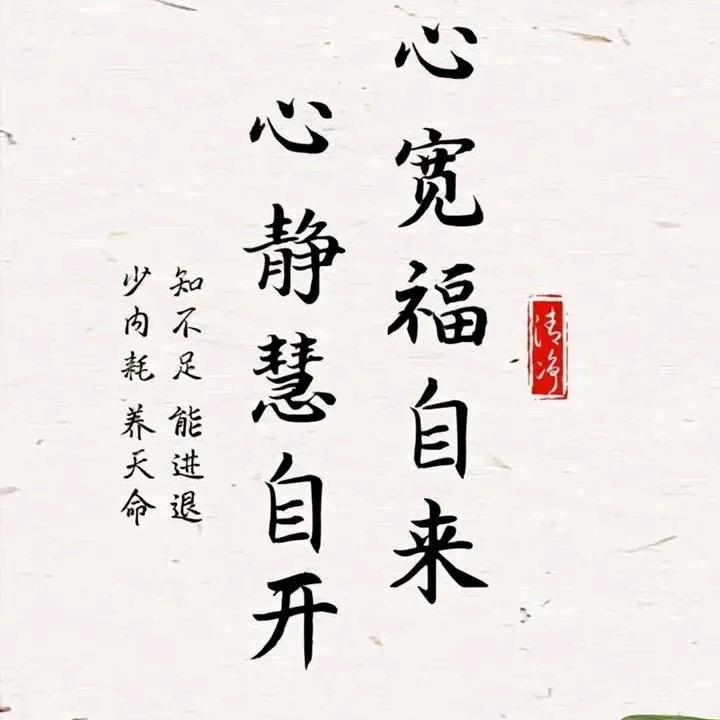 清净
心宽福自来
心静慧自开
知不足 能进退
少内耗 养天命